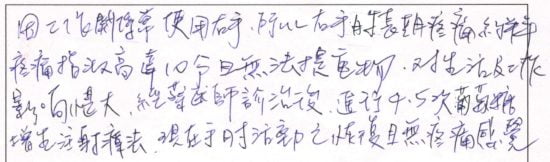 因工作關係常使用右手,所以右手肘長期疼痛約半年
疼痛指數高達10分且無法提重物,對生活及工作
影响慢大,經葉医師診治後,進行4.5次葡萄糖
增生注射療法,現在手肘活動已恢復且無疼痛感覺